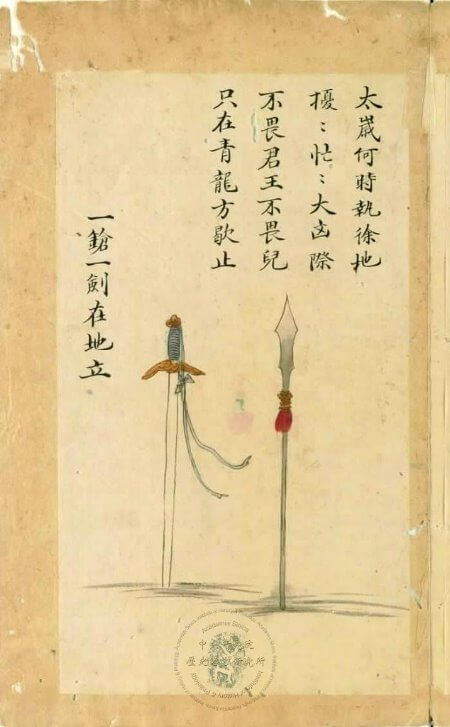 太嵗何時執徐地
擾〻忙〻大凶際
不畏君王不畏兒
只在青龍方歇止
一鎗一劍在地立
Academia Sinica
中央研究院
歷史語言研究所